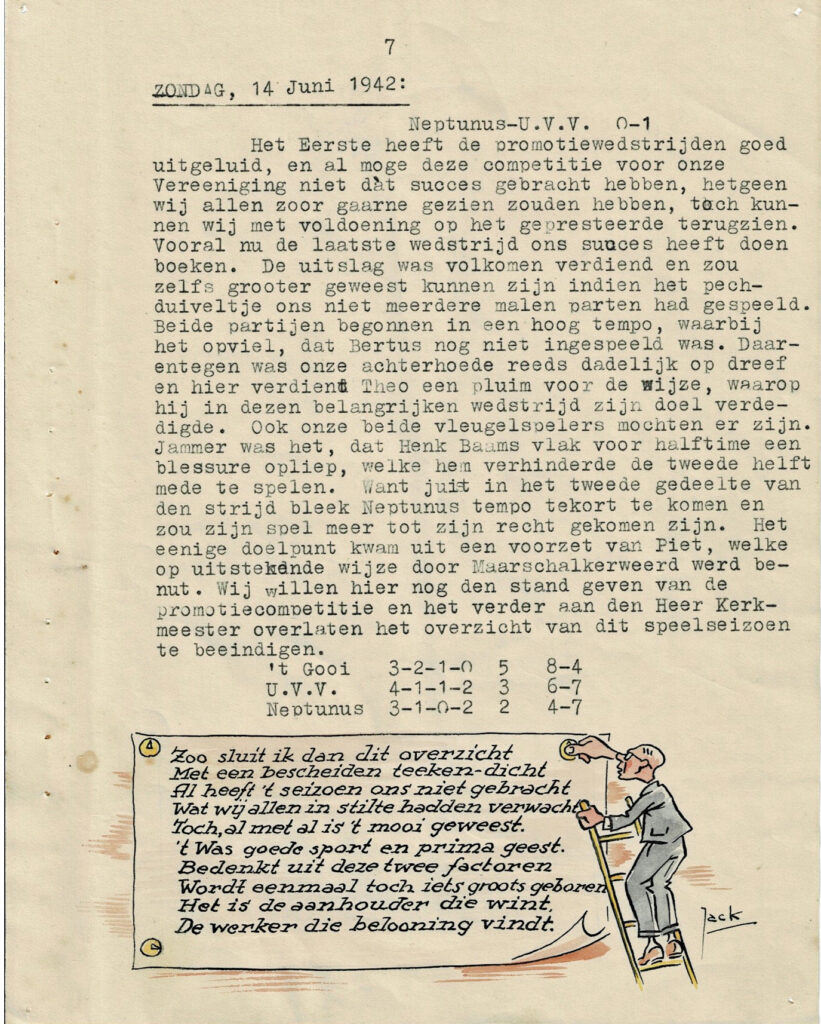 7
ZONDAG, 14 Juni 1942:
Neptunus-U.V.V. 0-1
Het Eerste heeft de promotiewedstrijden goed
uitgeluid, en al moge deze competitie voor onze
Vereeniging niet dàt succes gebracht hebben, hetgeen
wij allen zoor gaarne gezien zouden hebben, toch kun-
nen wij met voldoening op het gepresteerde terugzien.
Vooral nu de laatste wedstrijd ons succes heeft doen
boeken. De uitslag was volkomen verdiend en zou
zelfs grooter geweest kunnen zijn indien het pech-
duiveltje ons niet meerdere malen parten had gespeeld.
Beide partijen begonnen in een hoog tempo, waarbij
het opviel, dat Bertus nog niet ingespeeld was. Daar-
entegen was onze achterhoede reeds dadelijk op dreef
en hier verdient Theo een pluim voor de wijze, waarop
hij in dezen belangrijken wedstrijd zijn doel verde-
digde. Ook onze beide vleugelspelers mochten er zijn.
Jammer was het, dat Henk Baams vlak voor halftime een
blessure opliep, welke hem verhinderde de tweede helft
mede te spelen. Want juist in het tweede gedeelte van
den strijd bleek Neptunus tempo tekort te komen en
zou zijn spel meer tot zijn recht gekomen zijn. Het
eenige doelpunt kwam uit een voorzet van Piet, welke
op uitstekende wijze door Maarschalkerweerd werd be-
nut. Wij willen hier nog den stand geven van de
promotiecompetitie en het verder aan den Heer Kerk-
meester overlaten het overzicht van dit speelseizoen
te beeindigen.
't Gooi 3-2-1-0 5 8-4
U.V.V. 4-1-1-2 3 6-7
Neptunus 3-1-0-2 2 4-7
Zoo sluit ik dan dit overzicht
Met een bescheiden teeken-dicht
Al heeft 't seizoen ons niet gebracht
Wat wij allen in stilte hadden verwacht
Toch, al met al is 't mooi geweest.
't Was goede sport en prima geest.
Bedenkt uit deze twee factoren
Wordt eenmaal toch iets groots geboren
Het is de aanhouder die wint,
De werker die belooning vindt.
Jack